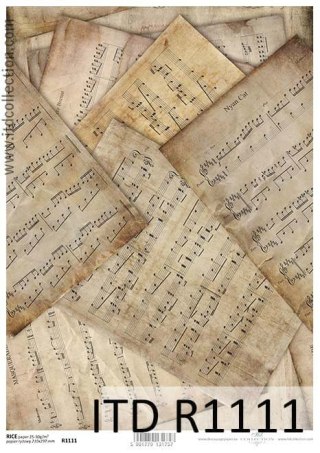 www.itdcollection.com
Nyan Cat
ITD R1111
RICE paper 25-30g/m²
papier ryżowy 210x297 mm
R1111
5 901270 131737